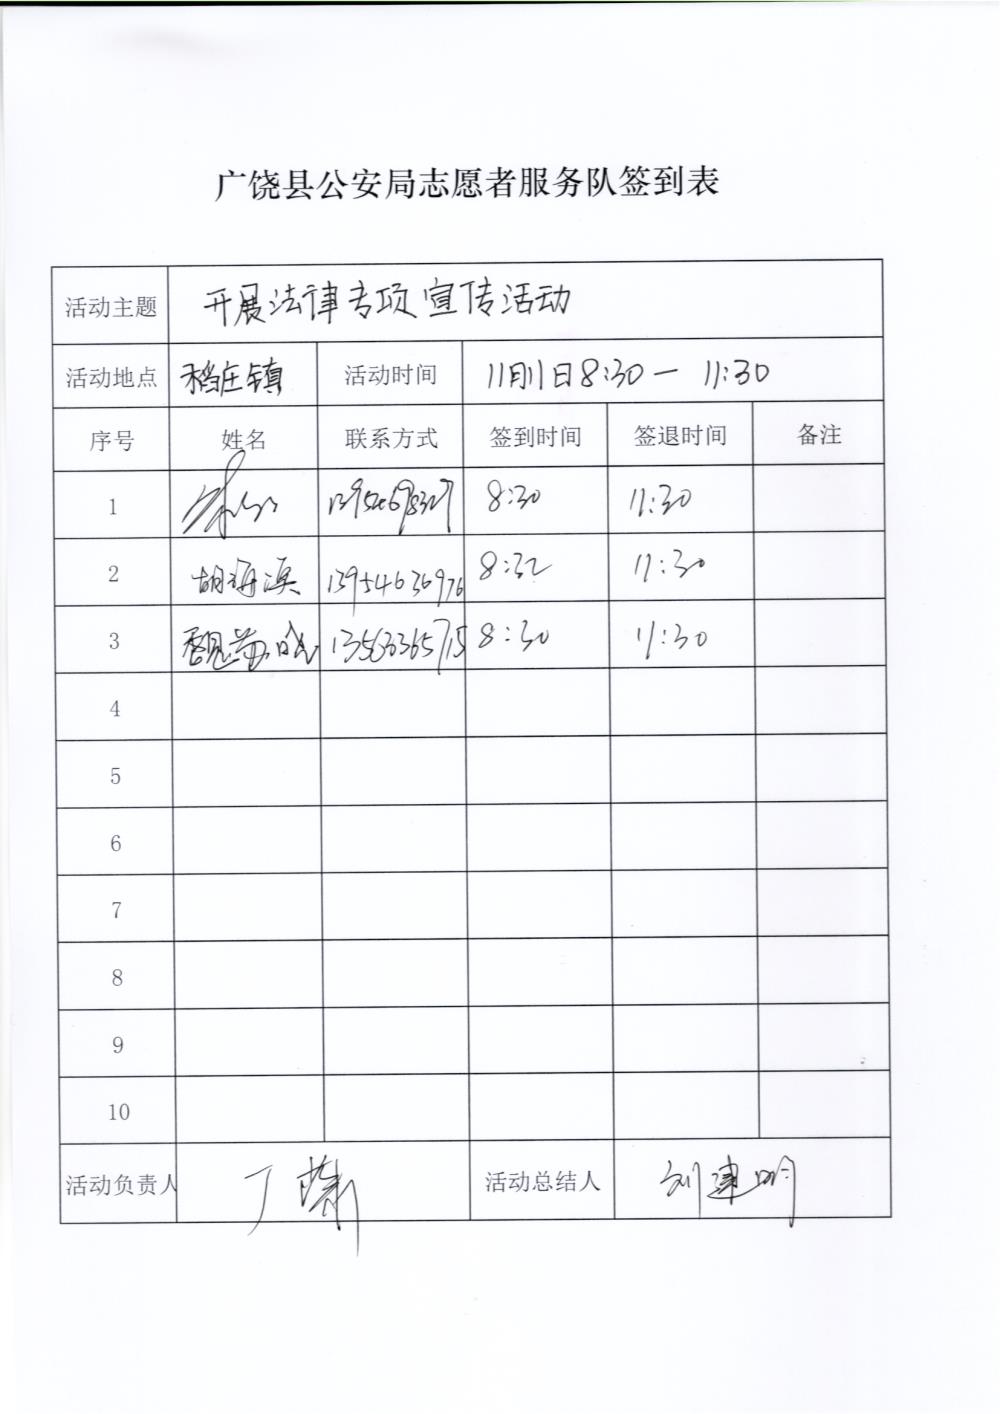 广饶县公安局志愿者服务队签到表
活动主题 开展法律专项宣传活动
活动地点 稻庄镇 活动时间 11月11日8:30一 11:30
序号 姓名 联系方式 签到时间 签退时间 备注
1 8:30 11:30
2 胡海滨 13954636976 8:32 11:30
3 13563365715 8:30 11:30
4
5
6
7
8
9
10
活动负责人 丁 活动总结人 刘建明